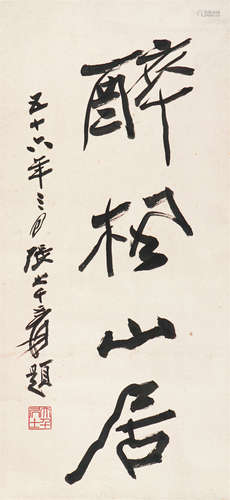 醉楓山居
五十六年三月張大千爰題